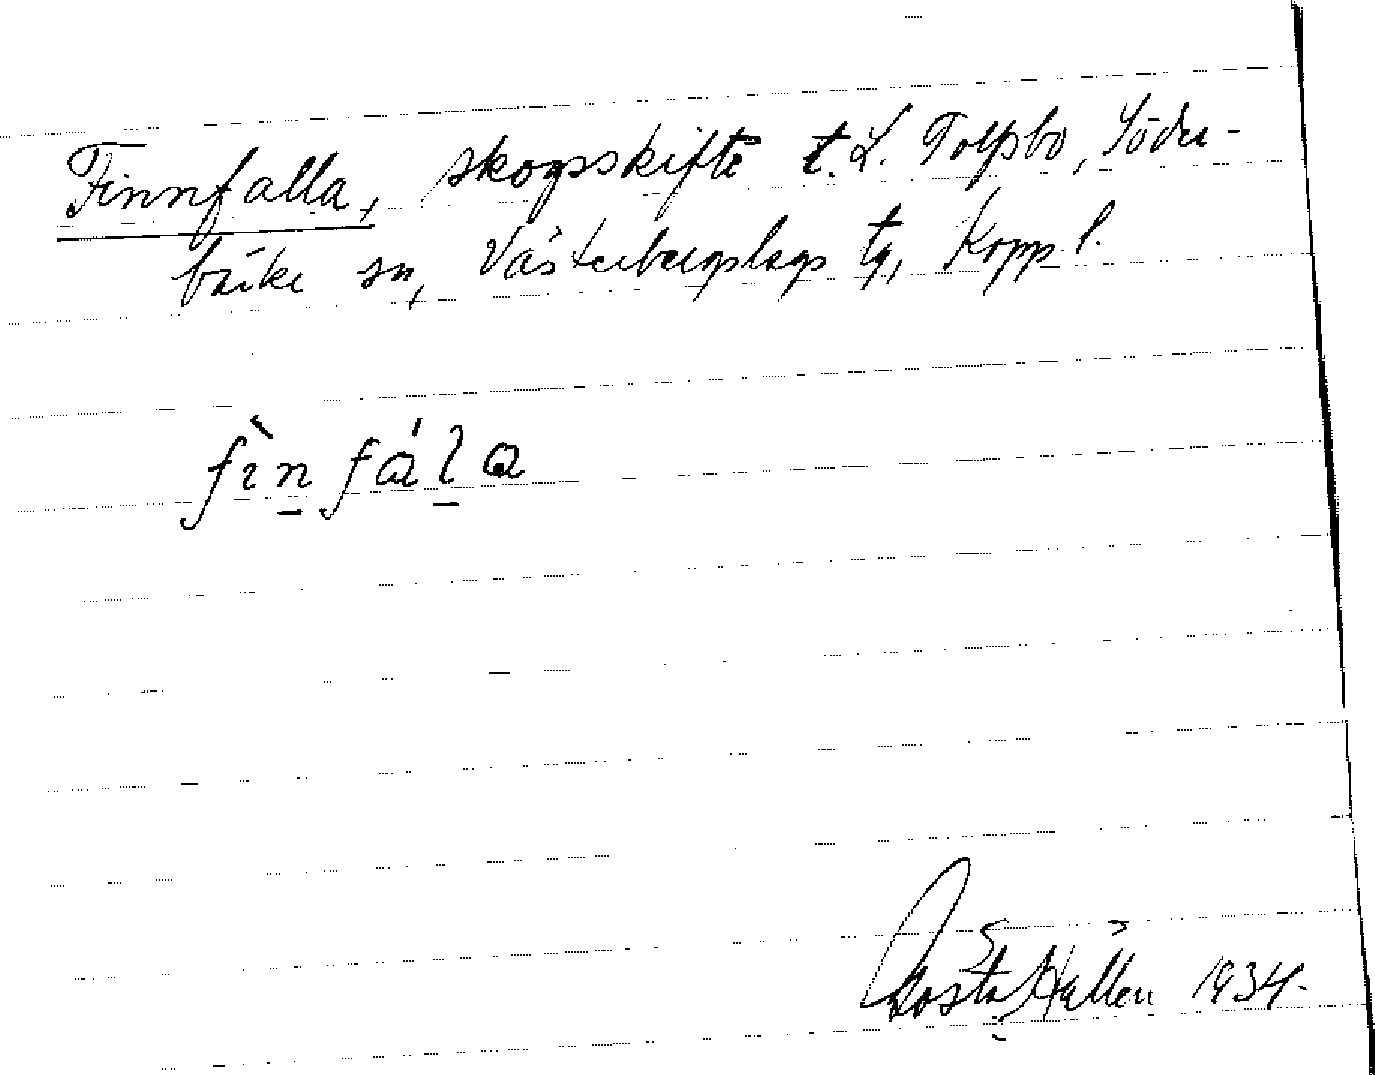 Finnfalla, skogsskifte t. L. Tolpbo, Söder-
bärke sn, Västerbergslags tg, Kopp l.
fìn̲fál̲a
Gösta Hallen 1934.